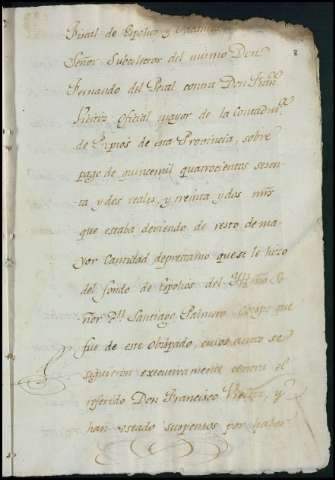 Fiscal de Espolios y Vacantes
8
Señor Subcolector del mismo Don
Fernando del Peral contra Don Fran.co
Oficial mayor de la Contadu.ria
de Propios de esta Provincia, sobre
pago de quince mil quatrocientos seten
ta y dos reales, y treinta y dos mrs
que estaba deviendo de resto de ma
yor Cantidad de prestamo que se le hizo
del fondo de espolios del Yll.mo Se
ñor D.n Santiago Palmero Obispo que
fue de este Obispado, cuios autos se
siguieron executivamente contra el
referido Don Francisco y
han estado suspensos por haber